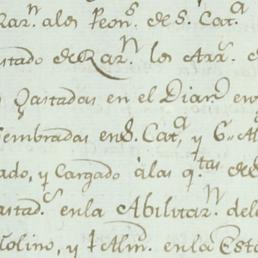 Rar.ⁿ alos Peon.ˢ de S. Cat.ᵃ
stado de Rar.ⁿ los Arr.ˢ
Gastadas en el Diar.º en
sembradas en d. Cat.ᵃ, y G.ᵃˢ
ado, y Cargado alas q.ᵗᵃˢ de
astad.ˢ en la Abilitar.ⁿ del
Molino, y 1 Alm. en la Est